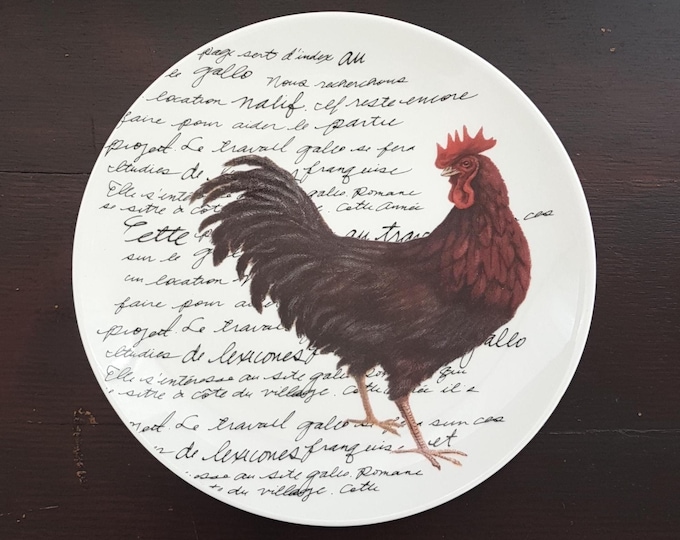 page sert d'index au
le gallo Nous recherchons
location natif. cef reste encore
faire pour aider le partie
projet. Le travail gallo se fera
etudies de françaises
Elle s'intéresse gallo. Romane
se sitre à côte Cette Année
Cette au ces
sur le
un location
faire pour aider
projet. Le travail gallo
etudies de lexicones
Elle s'intéresse au site gallo qui
sitre à côte du village. Cette il s
jet. Le travail gallo se sur ces
de lexicones française et
esse au site gallo. Romane
du village. Cette